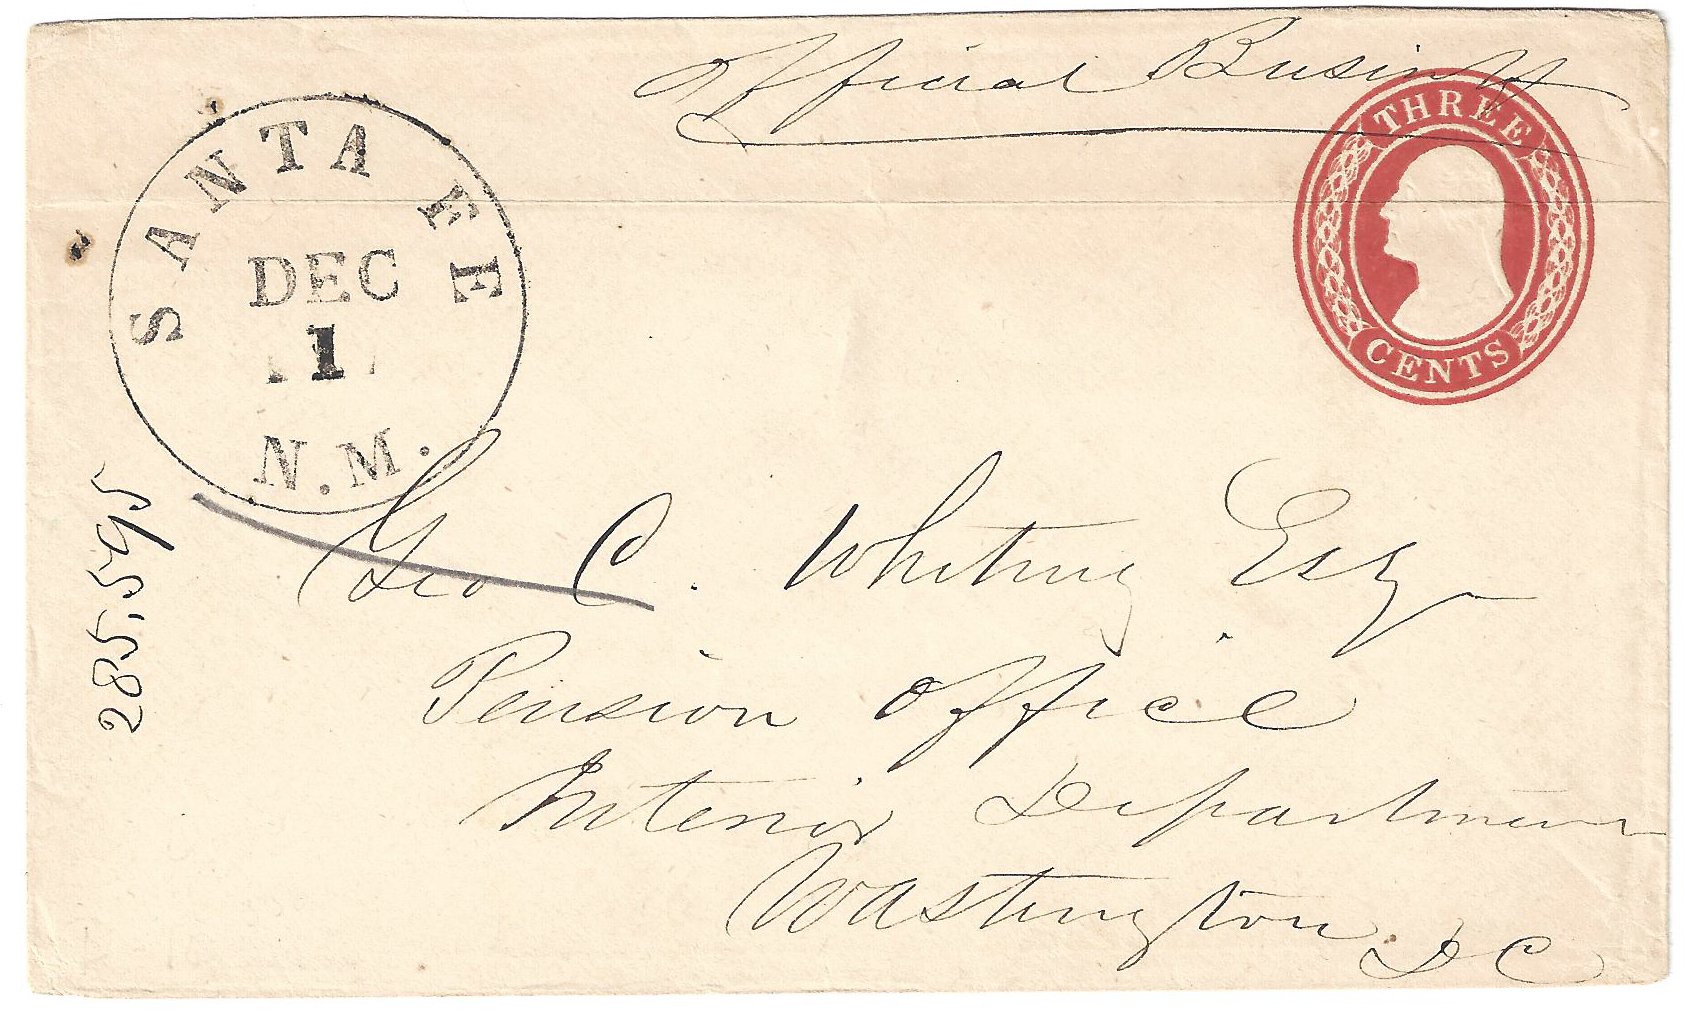 Official Business
THREE
CENTS
SANTA FE
DEC
1
N.M.
Geo C. Whiting Esq
Pension Office
Interior Department
Washington DC
285,595